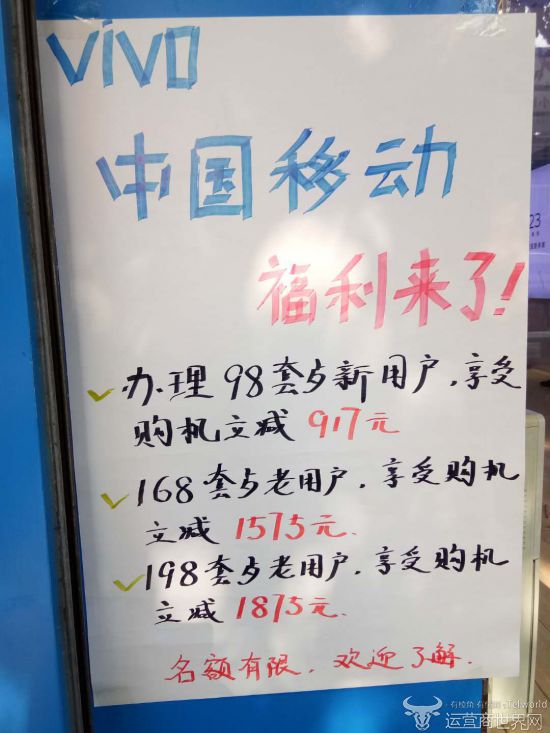 vivo
中国移动
福利来了!
办理98套歺新用户,享受
购机立减917元
168套歺老用户,享受购机
立减1575元.
198套歺老用户,享受购机
立减1875元.
名额有限,欢迎了解.
23
运营商世界网